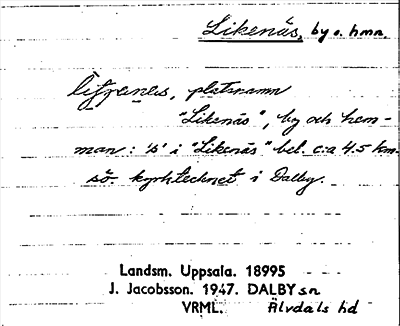 Likenäs, by o. hmn.
platsnamn
"Likenäs", by och hem-
man: 's' i "Likenäs" bel. c:a 4.5 km
sö kyrktecknet i Dalby.
Landsm. Uppsala. 18995
J. Jacobsson. 1947. DALBY sn
VRML. Älvdals hd